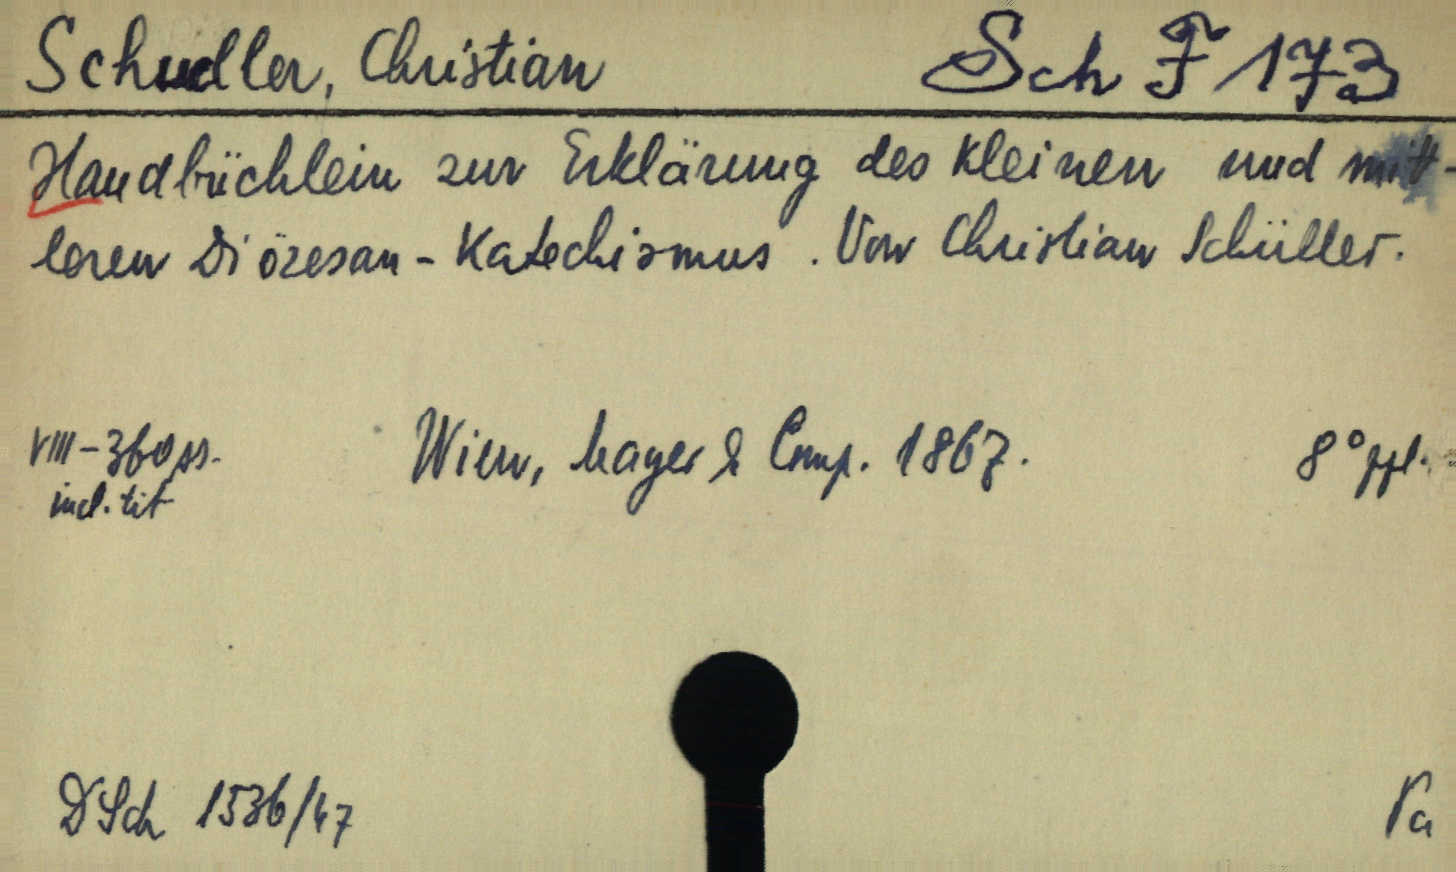 Schudler, Christian
Sch F 173
Handbüchlein zur Erklärung des kleinen und mitt-
leren Diözesan-Katechismus. Von Christian Schüller.
VIII-360 ss.
incl. tit
Wien, Mayer & Comp. 1867.
8° ppl.
DSch 1536/47